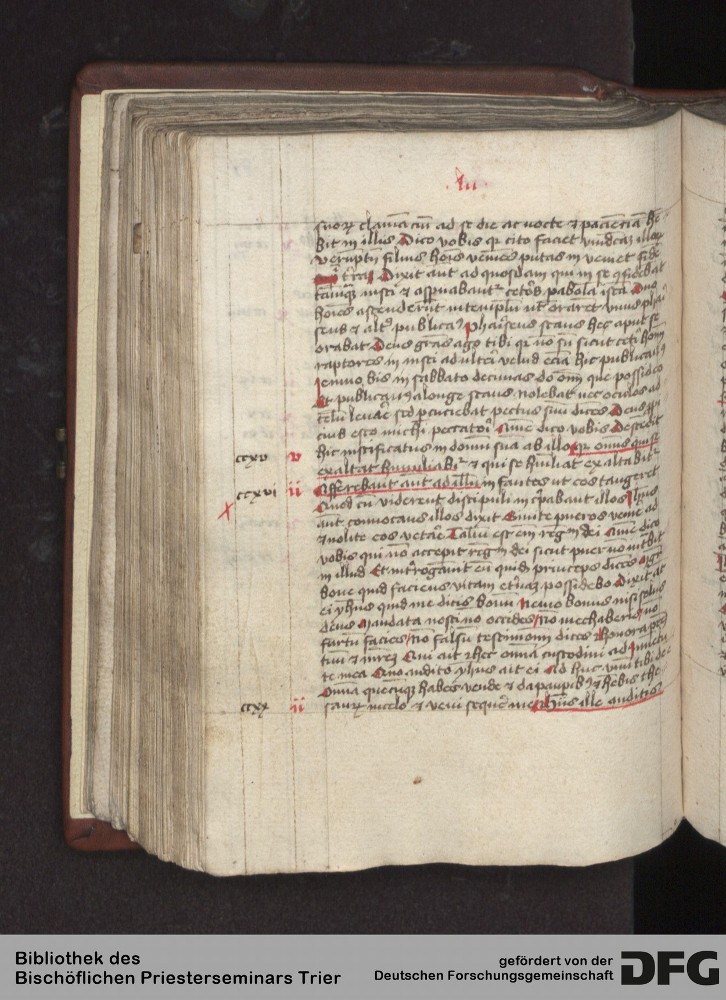 suorū clamanciū ad se die ac nocte ⁊ pacienciā hē
bit in illis Dico vobis qr cito faciet vindictaꝫ illorꝫ
verumptn̄ filius hōis veniēs putas in veniet fidē
in t̄raꝫ Dixit aut ad quosdam qui in se ꝯfidebāt
tāꝙ iusti ⁊ aspnabant ceteros pabolā istā Duo
hōies ascenderūt in templū ut orarēt vnus phari
seus ⁊ alt publicanꝯ Phariseus stans hec aput se
orabat Deus grās ago tibi qr nō sū sicut cet̄i hōm̄
raptores in iusti adulteri velud eciā hic publicanꝯ
Ieiuno bis in sabbato decimas do oīm que possideo
Et publicanꝯ alonge stans nolebat nec oculos ad
celū levare sed pcuciebat pectus suū dicēs Deus ppi
cius esto michi peccatori Amē dico vobis Descēdit
ccxv v hic iustificatus in domū suā ab illo qr omnis qui se
exaltat humiliabit ⁊ qui se hūiliat exaltabit
ccxvi ii Afferebant aut ad illū infantes ut eos tangeret
Quod cū viderent discipuli increpabant illos Ihūs
aut convocans illos dixit Sinite pueros venire ad
⁊ nolite eos vetare Taliū est eni regnū dei Amē dico
vobis qui nō acceperit regnū dei sicut puer nō intrabit
in illud Et interrogavit eū quidā princeps dicēs Mgr
bone quid faciens vitam eternaꝫ possidebo Dixit at
ei yhus quid me dicis bonū Nemo bonus nisi solus
deus Mandata nosti nō occides Nō mechaberis nō
furtū facies Nō falsū testimoniū dices Honora prēm
tuū ⁊ mrēꝫ Qui ait Hec omnia custodivi ad Iuventu
te mea Quo audito yhus ait ei Ad huc unū tibi de
Omnia quecūqꝫ habes vende ⁊ da paupibꝫ ⁊ hebis the
ccxx ii saurꝫ in celo ⁊ veni sequere me Hiis ille auditis
Bibliothek des
Bischöflichen Priesterseminars Trier
gefördert von der
Deutschen Forschungsgemeinschaft
DFG